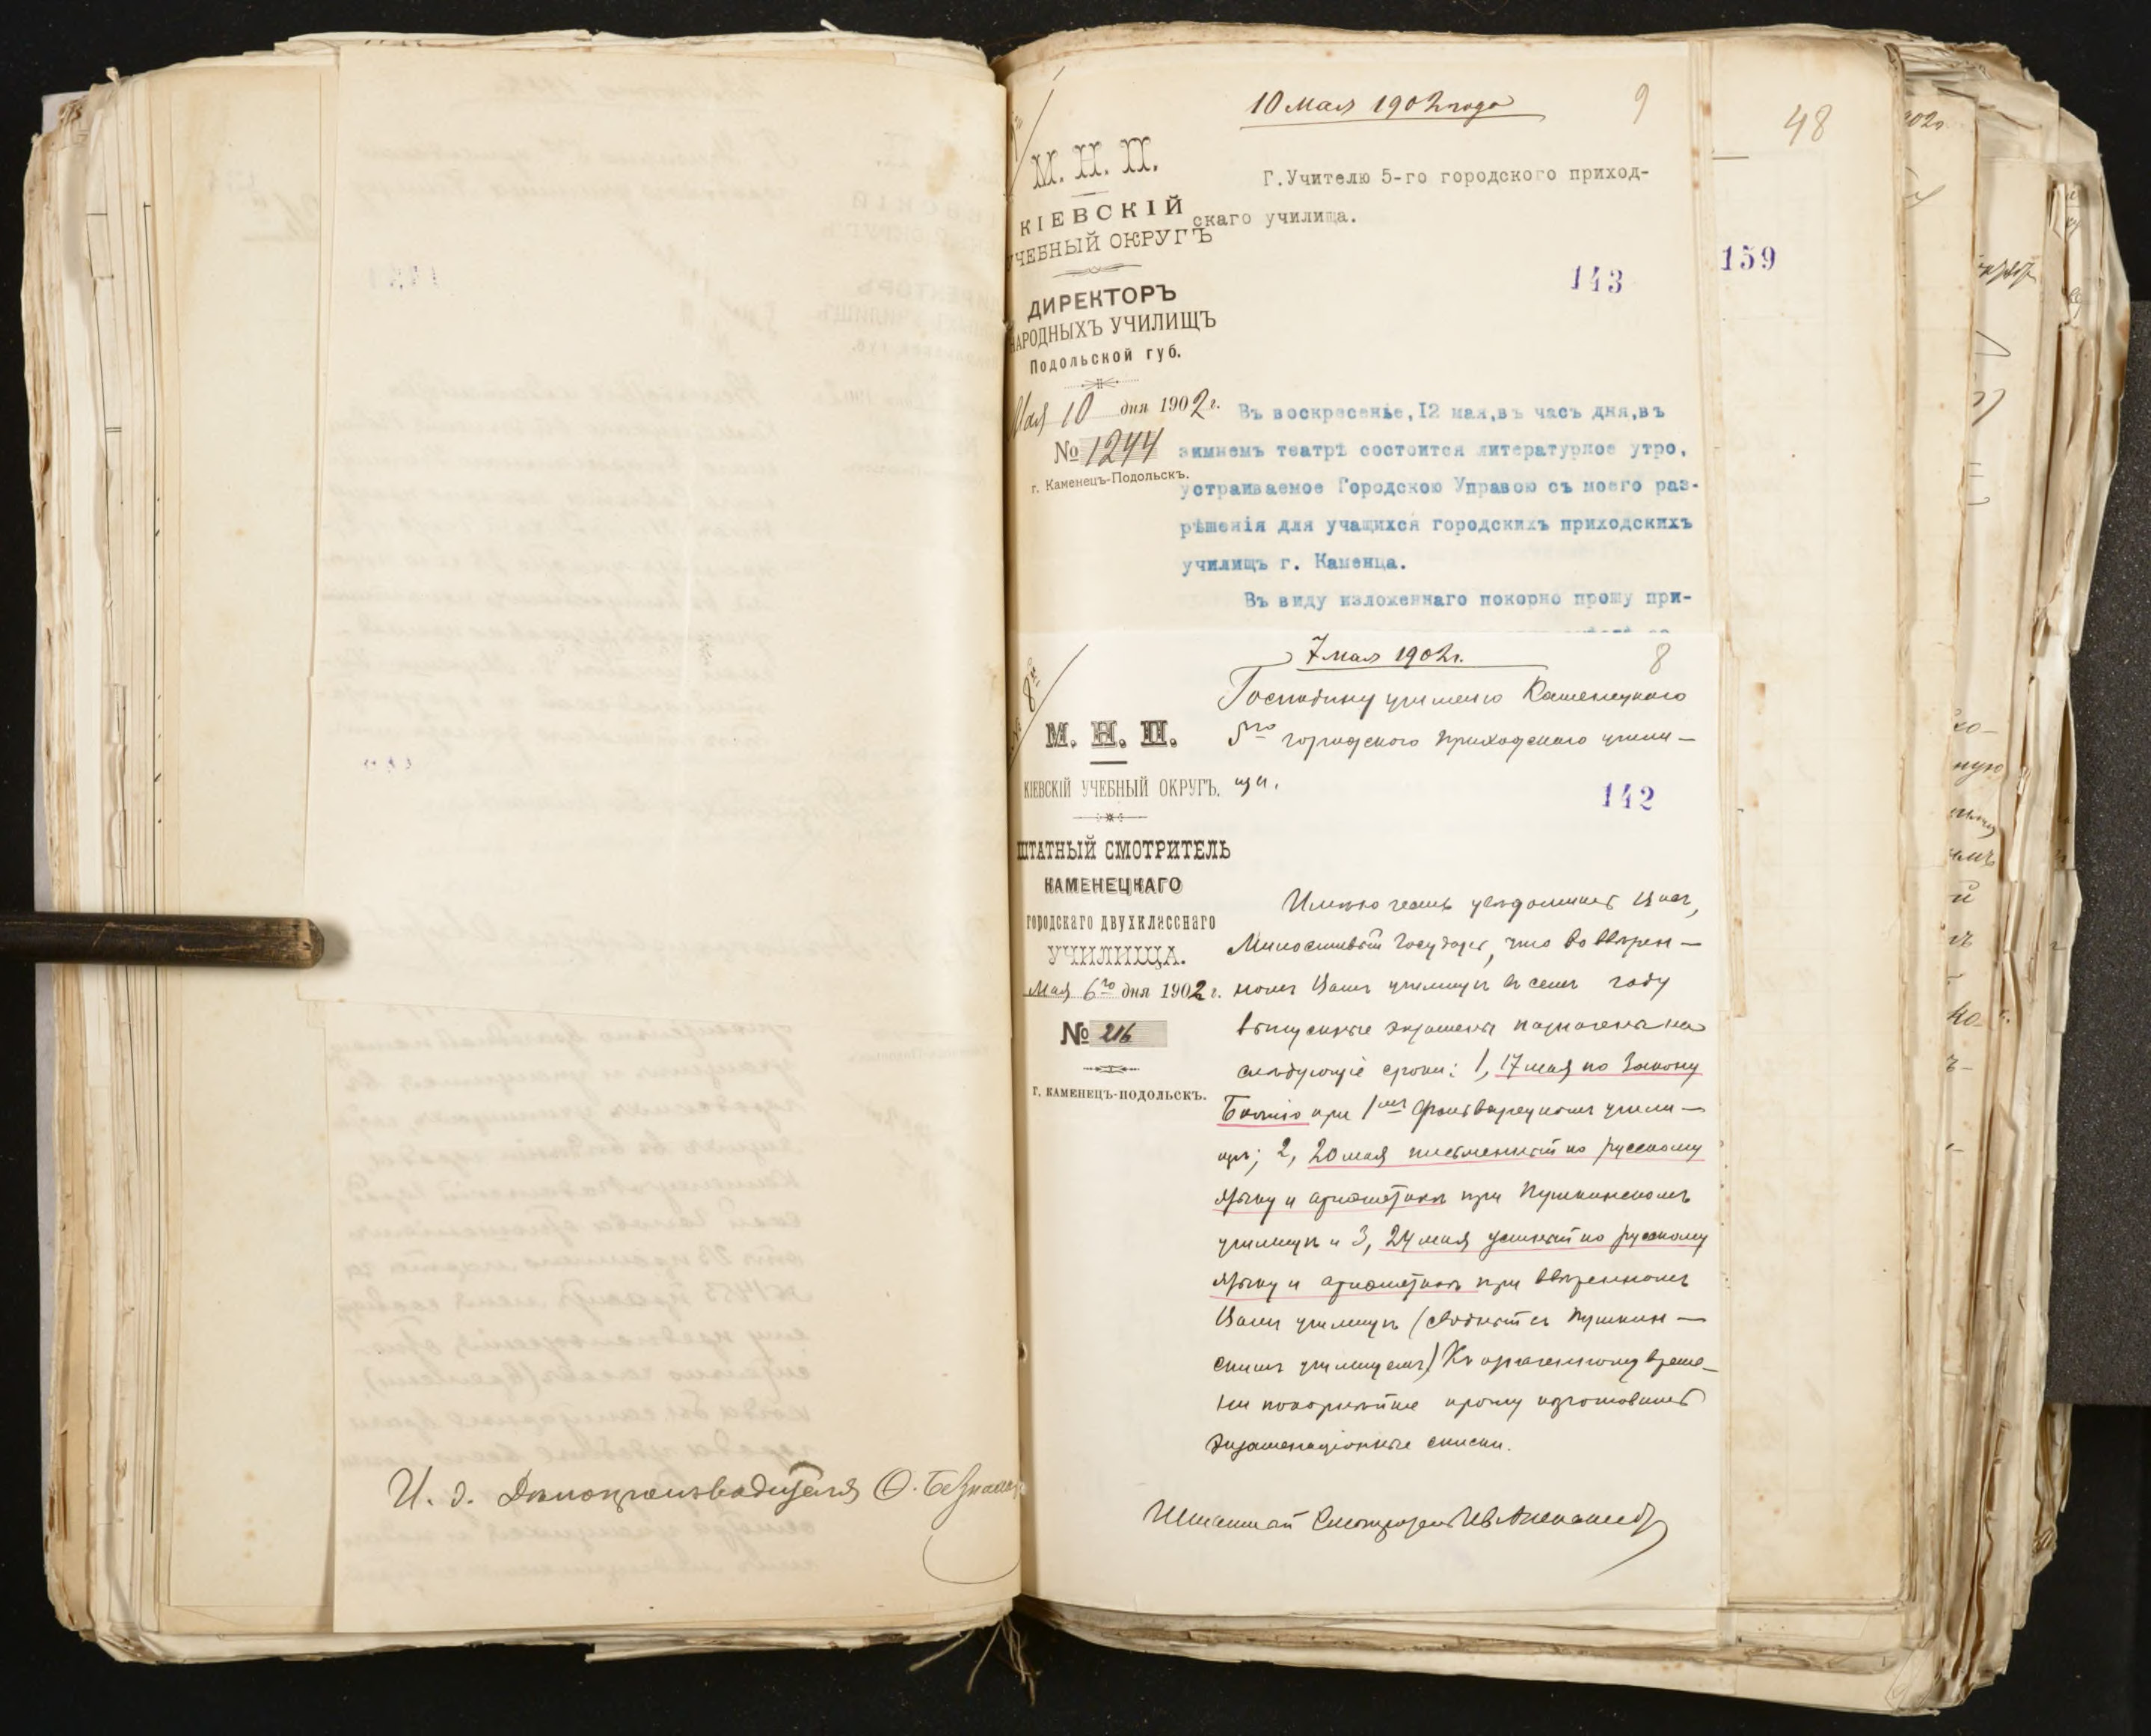 И. д. Делопроизводителя
10 Мая 1902 года
9
М. Н. П.
КІЕВСКІЙ
УЧЕБНЫЙ ОКРУГЪ
ДИРЕКТОРЪ
НАРОДНЫХЪ УЧИЛИЩЪ
Подольской губ.
Мая 10 дня 1902 г.
№ 1244
г. Каменецъ-Подольскъ.
Г.Учителю 5-го городского приход-
скаго училища.
143
Въ воскресенье,12 мая,въ часъ дня,въ
зимнемъ театрѣ состоится литературное утро,
устраиваемое Городскою Управою съ моего раз-
рѣшенія для учащихся городскихъ приходскихъ
училищъ г. Каменца.
Въ виду изложеннаго покорно прошу при-
7 мая 1902 г.
8
М. Н. П.
КІЕВСКІЙ УЧЕБНЫЙ ОКРУГЪ.
ШТАТНЫЙ СМОТРИТЕЛЬ
КАМЕНЕЦКАГО
городскаго двухкласснаго
УЧИЛИЩА.
Мая 6го дня 1902 г.
№ 216
Г. КАМЕНЕЦЪ-ПОДОЛЬСКЪ.
Господину учителю Каменецкого
5го городского приходскаго учили-
ща.
142
Имѣю честь увѣдомить Васъ,
Милостивый Государь, что во ввѣрен-
номъ Вамъ училищѣ въ семъ году
выпускные экзамены назначены на
слѣдующіе сроки: 1, 17 мая по Закону
Божію при 1мъ Фольварецкомъ учили-
щѣ; 2, 20 мая письменный по русскому
языку и ариѳметикѣ при Пушкинскомъ
училищѣ и 3, 24 мая устный по русскому
языку и ариѳметикѣ при ввѣренномъ
Вамъ училищѣ (сводный съ Пушкин-
скимъ училищемъ) Къ означенному време-
ни покорнѣйше прошу изготовить
экзаменаціонные списки.
Штатный Смотритель Ив.
48
159